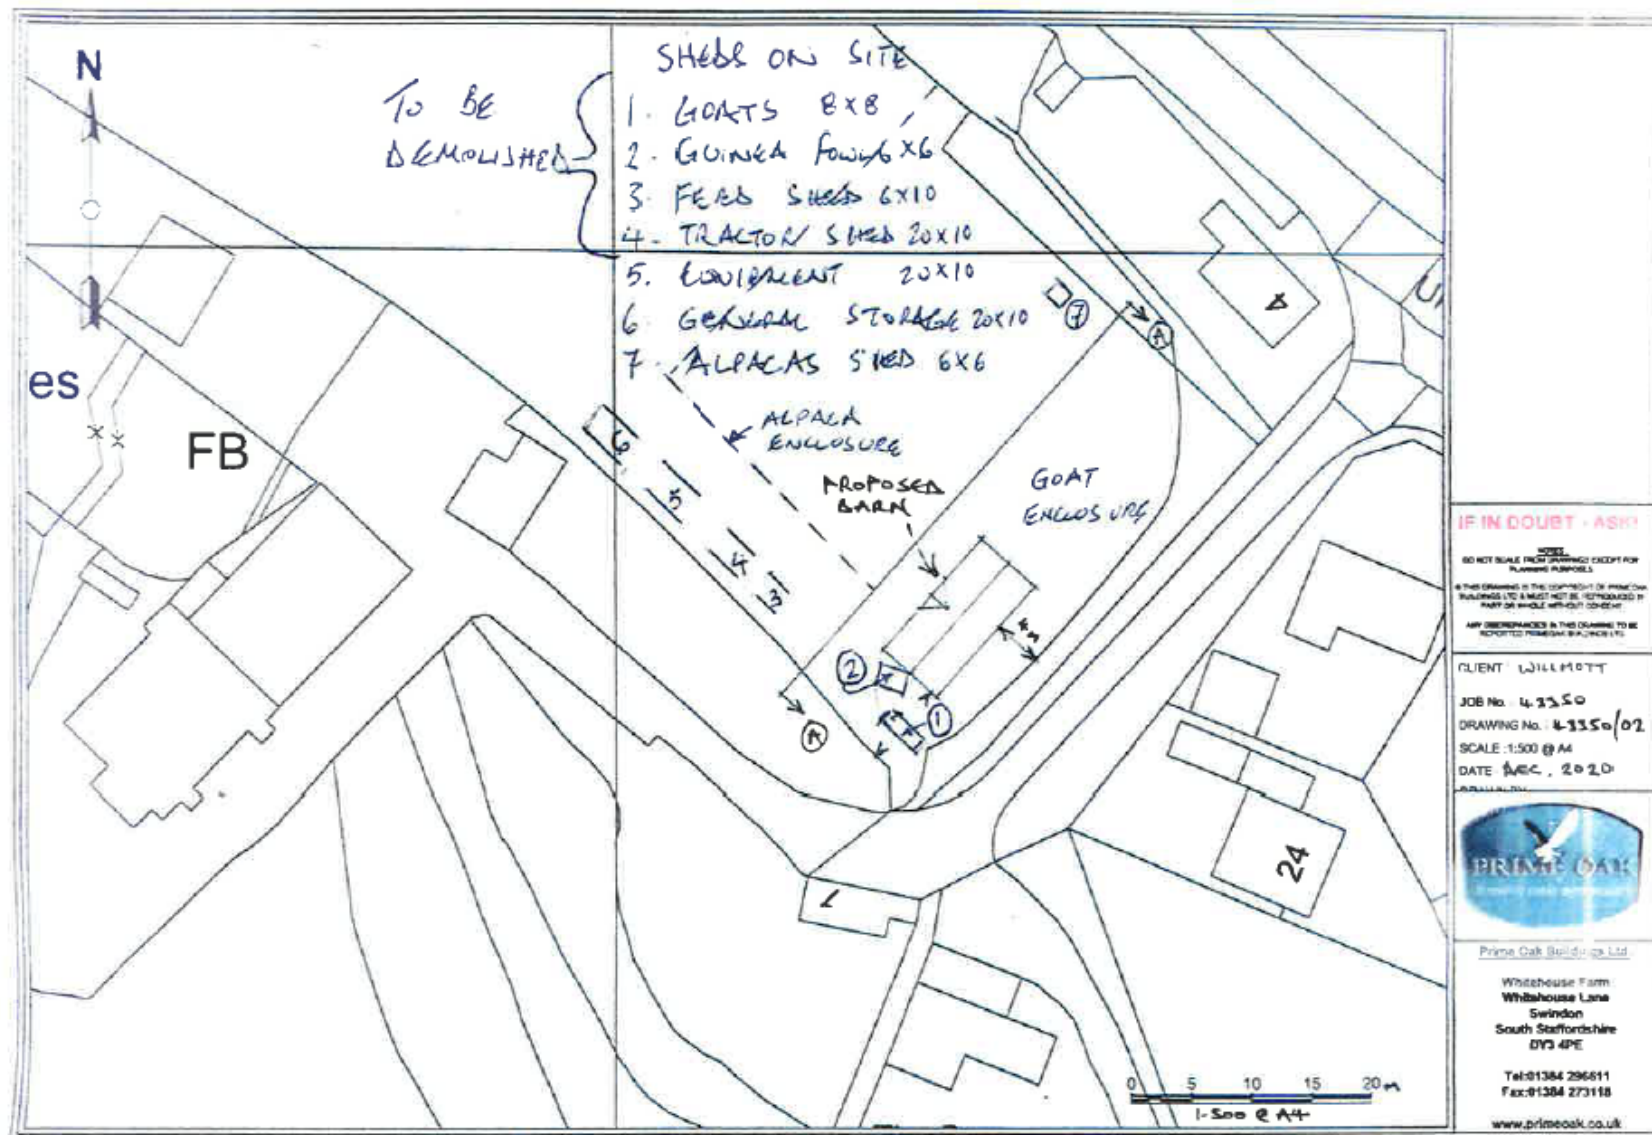 N
TO BE
DEMOLISHED
SHEDS ON SITE
1. GOATS 8X8
2. GUINEA FOWL 6X6
3. FEED SHED 6X10
4. TRACTOR SHED 20X10
5. EQUIPMENT 20X10
6. GENERAL STORAGE 20X10
7. ALPACAS SHED 6X6
es
FB
ALPACA
ENCLOSURE
PROPOSED
BARN
GOAT
ENCLOSURE
7
A
4
6
5
4
3
2
1
A
24
1
0 5 10 15 20 m
1-500 @ A4
IF IN DOUBT - ASK!
NOTES
DO NOT SCALE FROM DRAWINGS EXCEPT FOR
PLANNING PURPOSES
© THIS DRAWING IS THE COPYRIGHT OF PRIME OAK
BUILDINGS LTD & MUST NOT BE REPRODUCED IN
PART OR WHOLE WITHOUT CONSENT
ANY DISCREPANCIES IN THIS DRAWING TO BE
REPORTED PRIMEOAK BUILDINGS LTD
CLIENT: WILLMOTT
JOB No.: 43350
DRAWING No.: 43350/02
SCALE :1:500 @ A4
DATE: DEC, 2020
PRIME OAK
Prime Oak Buildings Ltd
Whitehouse Farm
Whitehouse Lane
Swindon
South Staffordshire
DY3 4PE
Tel:01384 296611
Fax:01384 273118
www.primeoak.co.uk